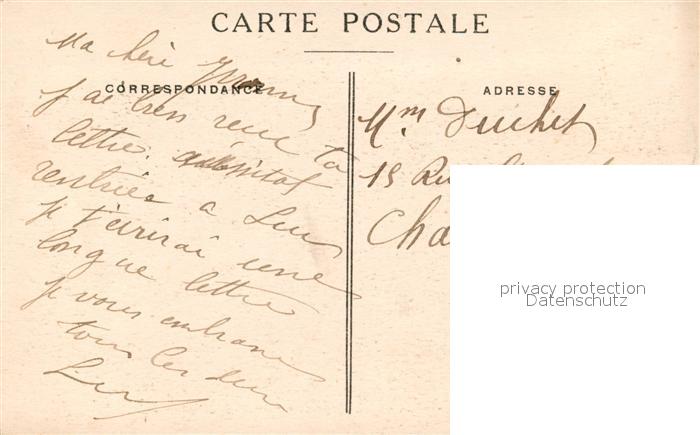 CARTE POSTALE
CORRESPONDANCE
ADRESSE
Ma chère Yvonne
j'ai bien reçu ta
lettre. aussitot
rentrée a
je t'écrirai une
longue lettre
je vous embrasse
tous les deux
Mm Duchet
15 Rue
Cha
privacy protection
Datenschutz